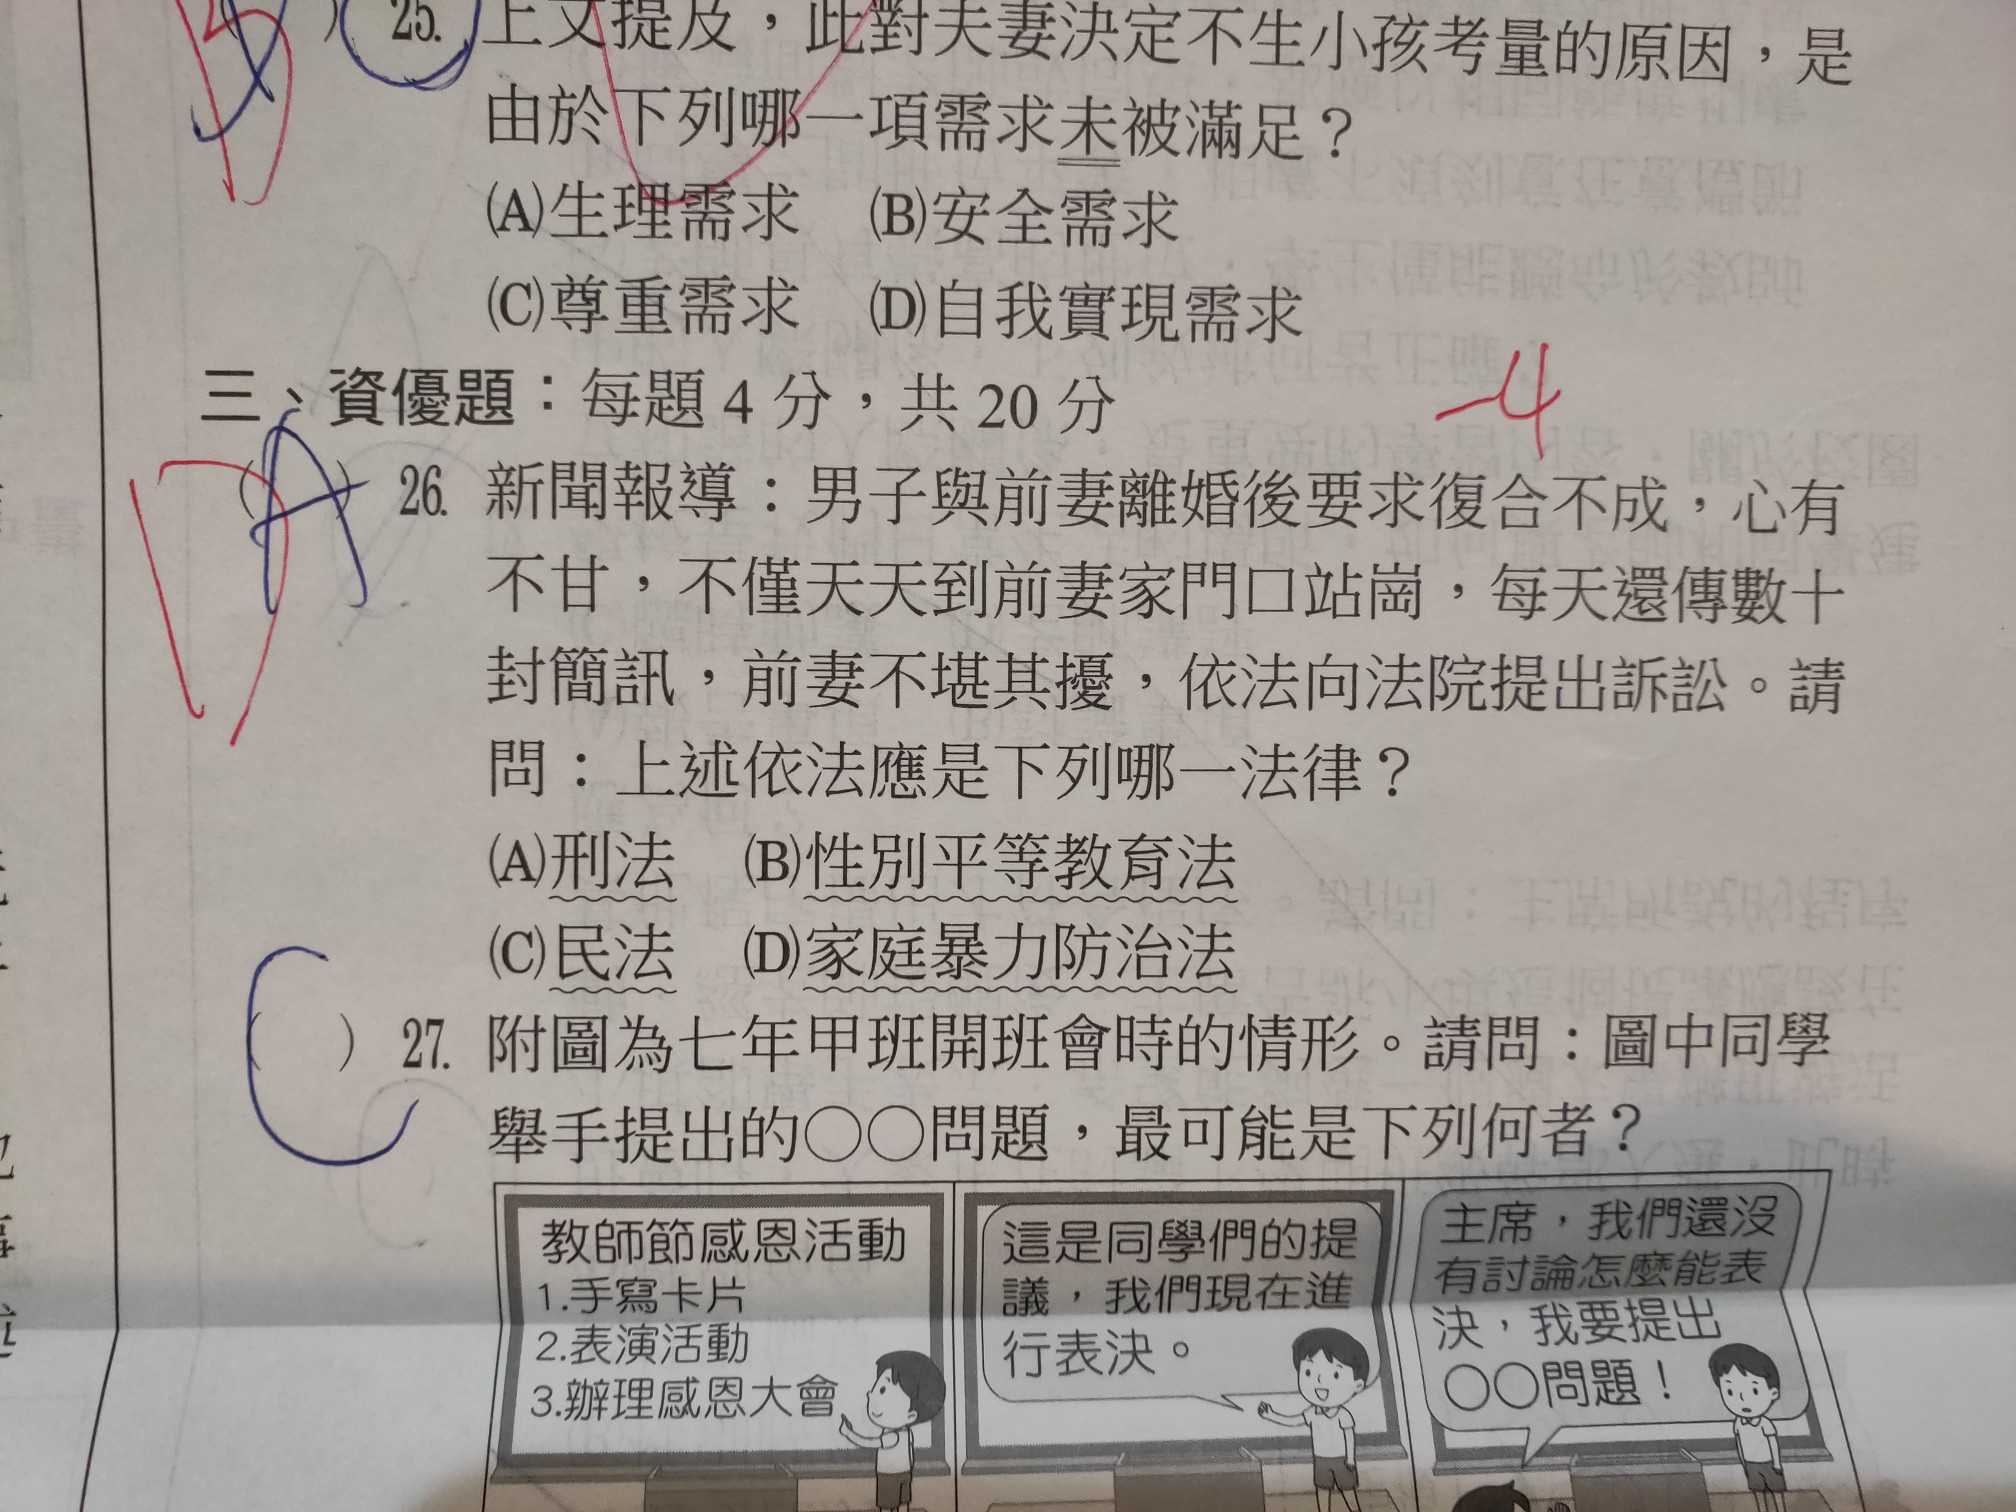 ) 25. 上文提及，此對夫妻決定不生小孩考量的原因，是
由於下列哪一項需求未被滿足？
(A)生理需求 (B)安全需求
(C)尊重需求 (D)自我實現需求
三、資優題：每題 4 分，共 20 分
-4
(A) 26. 新聞報導：男子與前妻離婚後要求復合不成，心有
不甘，不僅天天到前妻家門口站崗，每天還傳數十
封簡訊，前妻不堪其擾，依法向法院提出訴訟。請
問：上述依法應是下列哪一法律？
(A)刑法 (B)性別平等教育法
(C)民法 (D)家庭暴力防治法
(C) 27. 附圖為七年甲班開班會時的情形。請問：圖中同學
舉手提出的○○問題，最可能是下列何者？
教師節感恩活動
1.手寫卡片
2.表演活動
3.辦理感恩大會
這是同學們的提
議，我們現在進
行表決。
主席，我們還沒
有討論怎麼能表
決，我要提出
○○問題！